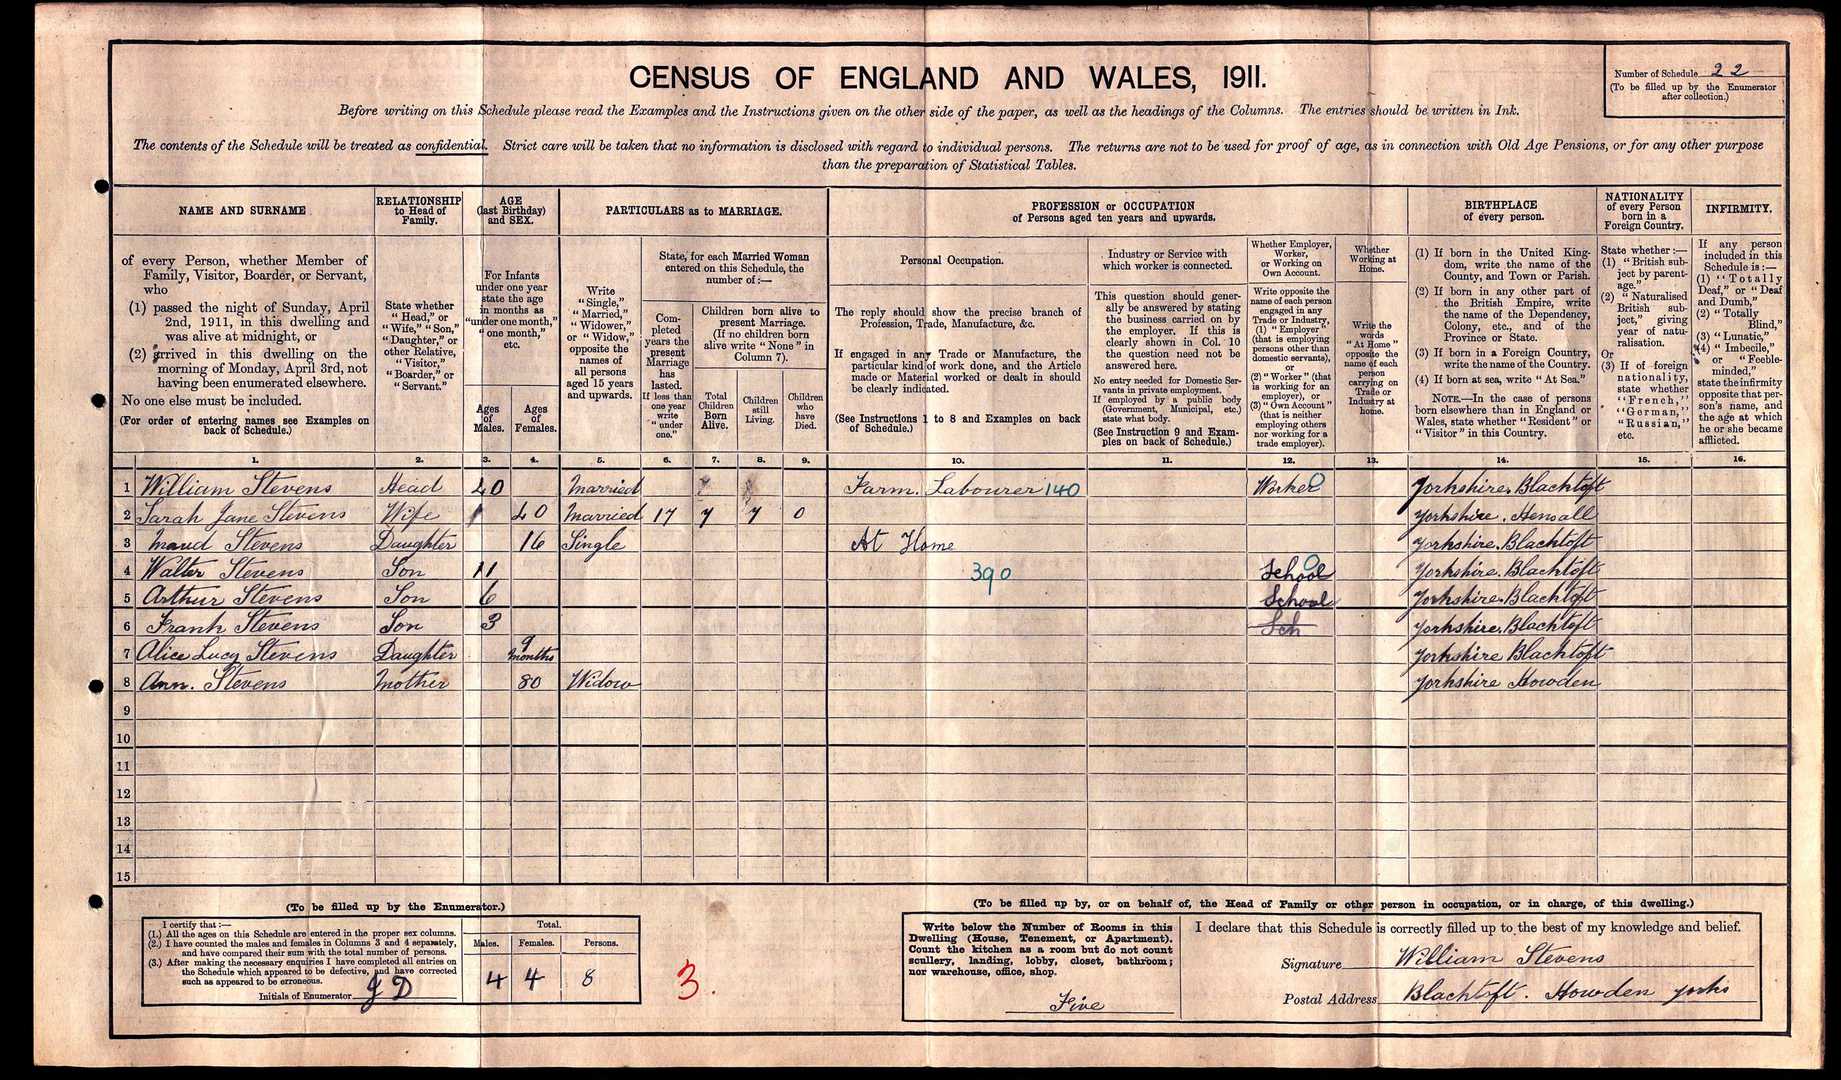 CENSUS OF ENGLAND AND WALES, 1911.
Number of Schedule 22
(To be filled up by the Enumerator
after collection.)
Before writing on this Schedule please read the Examples and the Instructions given on the other side of the paper, as well as the headings of the Columns. The entries should be written in Ink.
The contents of the Schedule will be treated as confidential. Strict care will be taken that no information is disclosed with regard to individual persons. The returns are not to be used for proof of age, as in connection with Old Age Pensions, or for any other purpose
than the preparation of Statistical Tables.
NAME AND SURNAME
of every Person, whether Member of
Family, Visitor, Boarder, or Servant,
who
(1) passed the night of Sunday, April
2nd, 1911, in this dwelling and
was alive at midnight, or
(2) arrived in this dwelling on the
morning of Monday, April 3rd, not
having been enumerated elsewhere.
No one else must be included.
(For order of entering names see Examples on
back of Schedule.)
RELATIONSHIP
to Head of
Family.
State whether
"Head," or
"Wife," "Son,"
"Daughter," or
other Relative,
"Visitor,"
"Boarder," or
"Servant."
AGE
(last Birthday)
and SEX.
For Infants
under one year
state the age
in months as
"under one month,"
"one month,"
etc.
Ages
of
Males.
Ages
of
Females.
PARTICULARS as to MARRIAGE.
Write
"Single,"
"Married,"
"Widower,"
or "Widow,"
opposite the
names of
all persons
aged 15 years
and upwards.
State, for each Married Woman
entered on this Schedule, the
number of:—
Com-
pleted
years the
present
Marriage
has
lasted.
If less than
one year
write
"under
one."
Children born alive to
present Marriage.
(If no children born
alive write "None" in
Column 7).
Total
Children
Born
Alive.
Children
still
Living.
Children
who
have
Died.
PROFESSION or OCCUPATION
of Persons aged ten years and upwards.
Personal Occupation.
The reply should show the precise branch of
Profession, Trade, Manufacture, &c.
If engaged in any Trade or Manufacture, the
particular kind of work done, and the Article
made or Material worked or dealt in should
be clearly indicated.
(See Instructions 1 to 8 and Examples on back
of Schedule.)
Industry or Service with
which worker is connected.
This question should gener-
ally be answered by stating
the business carried on by
the employer. If this is
clearly shown in Col. 10
the question need not be
answered here.
No entry needed for Domestic Ser-
vants in private employment.
If employed by a public body
(Government, Municipal, etc.)
state what body.
(See Instruction 9 and Exam-
ples on back of Schedule.)
Whether Employer,
Worker,
or Working on
Own Account.
Write opposite the
name of each person
engaged in any
Trade or Industry,
(1) "Employer"
(that is employing
persons other than
domestic servants),
or
(2) "Worker" (that
is working for an
employer), or
(3) "Own Account"
(that is neither
employing others
nor working for a
trade employer).
Whether
Working at
Home.
Write the
words
"At Home"
opposite the
name of each
person
carrying on
Trade or
Industry at
home.
BIRTHPLACE
of every person.
(1) If born in the United King-
dom, write the name of the
County, and Town or Parish.
(2) If born in any other part of
the British Empire, write
the name of the Dependency,
Colony, etc., and of the
Province or State.
(3) If born in a Foreign Country,
write the name of the Country.
(4) If born at sea, write "At Sea."
NOTE.—In the case of persons
born elsewhere than in England or
Wales, state whether "Resident" or
"Visitor" in this Country.
NATIONALITY
of every Person
born in a
Foreign Country.
State whether:—
(1) "British sub-
ject by parent-
age."
(2) "Naturalised
British sub-
ject," giving
year of natu-
ralisation.
Or
(3) If of foreign
nationality,
state whether
"French,"
"German,"
"Russian,"
etc.
INFIRMITY.
If any person
included in this
Schedule is:—
(1) "Totally
Deaf," or "Deaf
and Dumb,"
(2) "Totally
Blind,"
(3) "Lunatic,"
(4) "Imbecile,"
or "Feeble-
minded,"
state the infirmity
opposite that per-
son's name, and
the age at which
he or she became
afflicted.
1. 2. 3. 4. 5. 6. 7. 8. 9. 10. 11. 12. 13. 14. 15. 16.
1 William Stevens Head 40 Married Farm. Labourer 140 Worker Yorkshire. Blacktoft
2 Sarah Jane Stevens Wife 40 Married 17 7 7 0 Yorkshire. Hensall
3 Maud Stevens Daughter 16 Single At Home Yorkshire. Blacktoft
4 Walter Stevens Son 11 390 School Yorkshire. Blacktoft
5 Arthur Stevens Son 6 School Yorkshire. Blacktoft
6 Frank Stevens Son 3 Sch Yorkshire. Blacktoft
7 Alice Lucy Stevens Daughter 9 months Yorkshire Blacktoft
8 Ann. Stevens Mother 80 Widow Yorkshire Howden
9
10
11
12
13
14
15
(To be filled up by the Enumerator.)
I certify that:—
(1.) All the ages on this Schedule are entered in the proper sex columns.
(2.) I have counted the males and females in Columns 3 and 4 separately,
and have compared their sum with the total number of persons.
(3.) After making the necessary enquiries I have completed all entries on
the Schedule which appeared to be defective, and have corrected
such as appeared to be erroneous.
Initials of Enumerator J D
Total.
Males. Females. Persons.
4 4 8
3.
(To be filled up by, or on behalf of, the Head of Family or other person in occupation, or in charge, of this dwelling.)
Write below the Number of Rooms in this
Dwelling (House, Tenement, or Apartment).
Count the kitchen as a room but do not count
scullery, landing, lobby, closet, bathroom;
nor warehouse, office, shop.
Five
I declare that this Schedule is correctly filled up to the best of my knowledge and belief.
Signature William Stevens
Postal Address Blacktoft. Howden Yorks